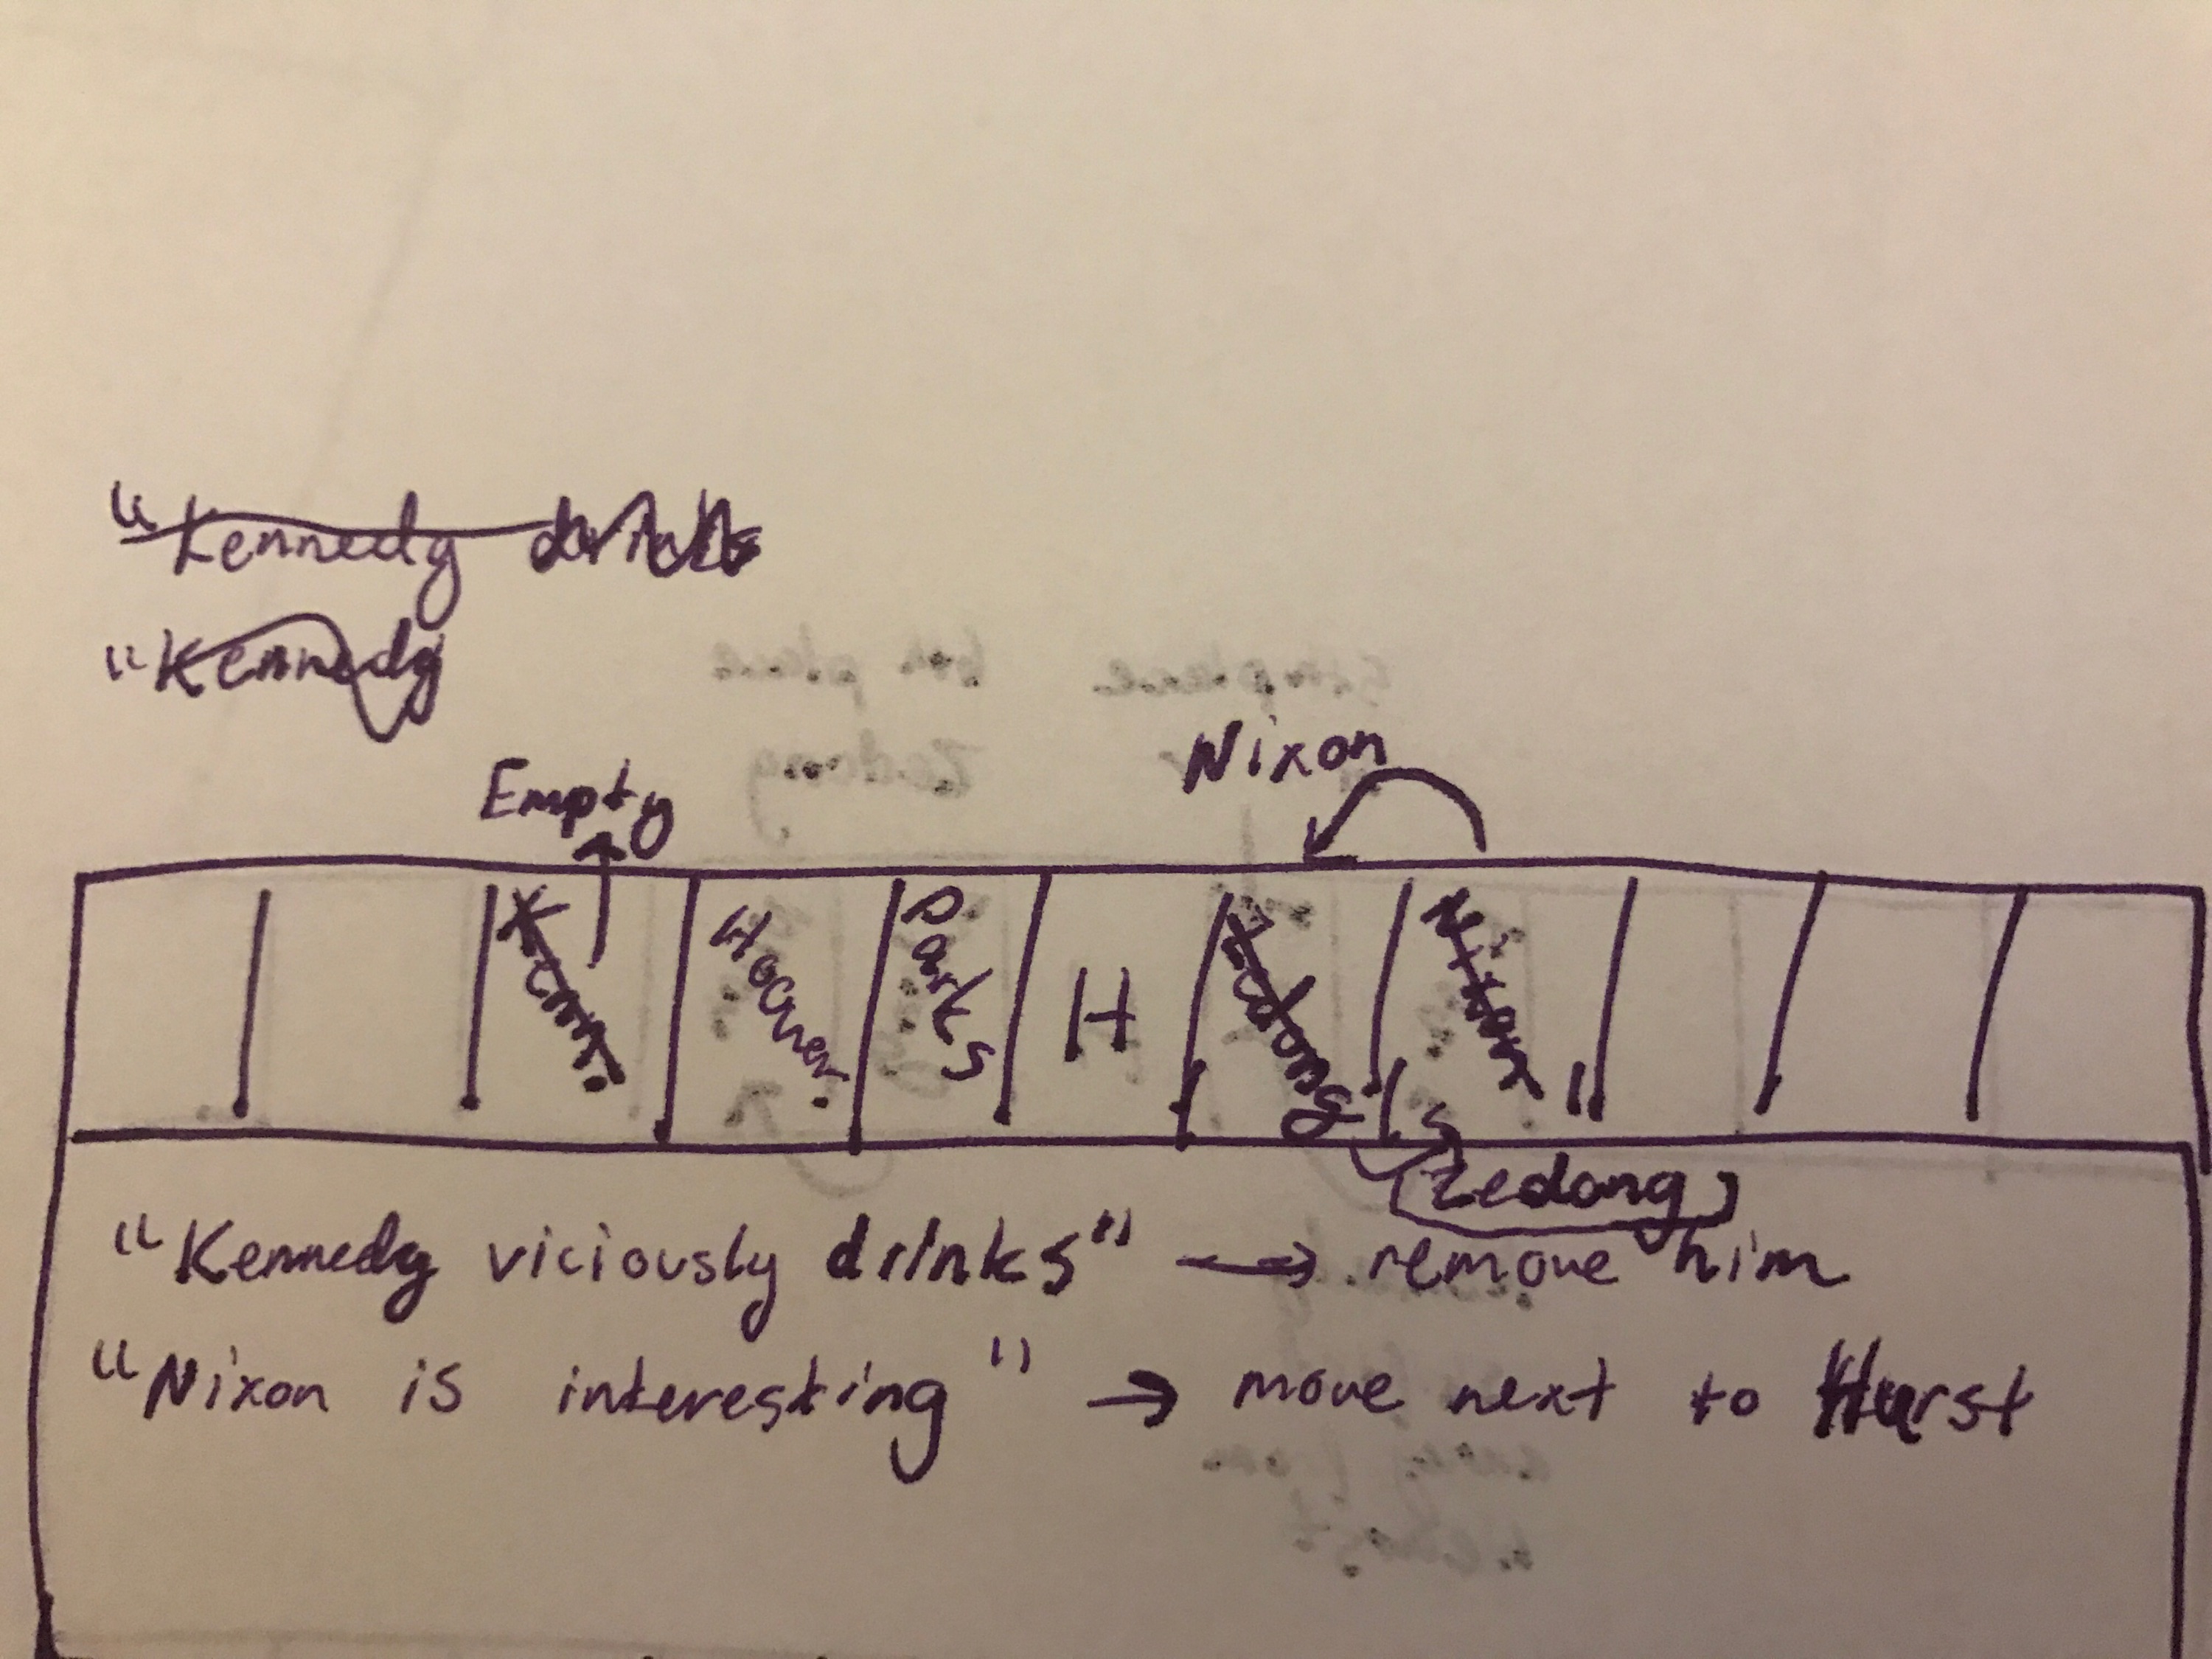 "Kennedy drinks
"Kennedy
Empty
Nixon
Hoover
Parks
H
Zedong
Nixon
Zedong
"Kennedy viciously drinks" → remove him
"Nixon is interesting" → move next to Hurst